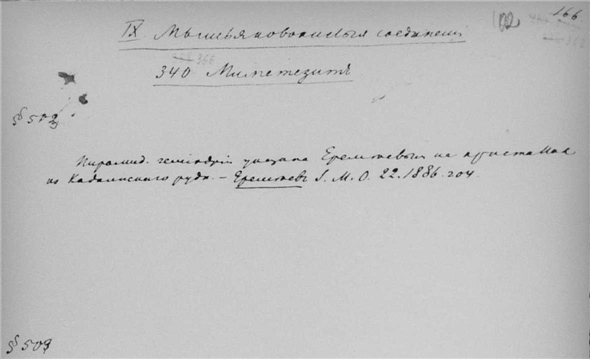 166
102
IX Мышьяковокислыя соединенія
366
340 Миметезитъ
§ 502
Пирамид. геміэдрія указана Еремѣевымъ на кристаллахъ
изъ Кадаинскаго рудн. – Еремѣевъ S. M. O. 22. 1886.
§ 503